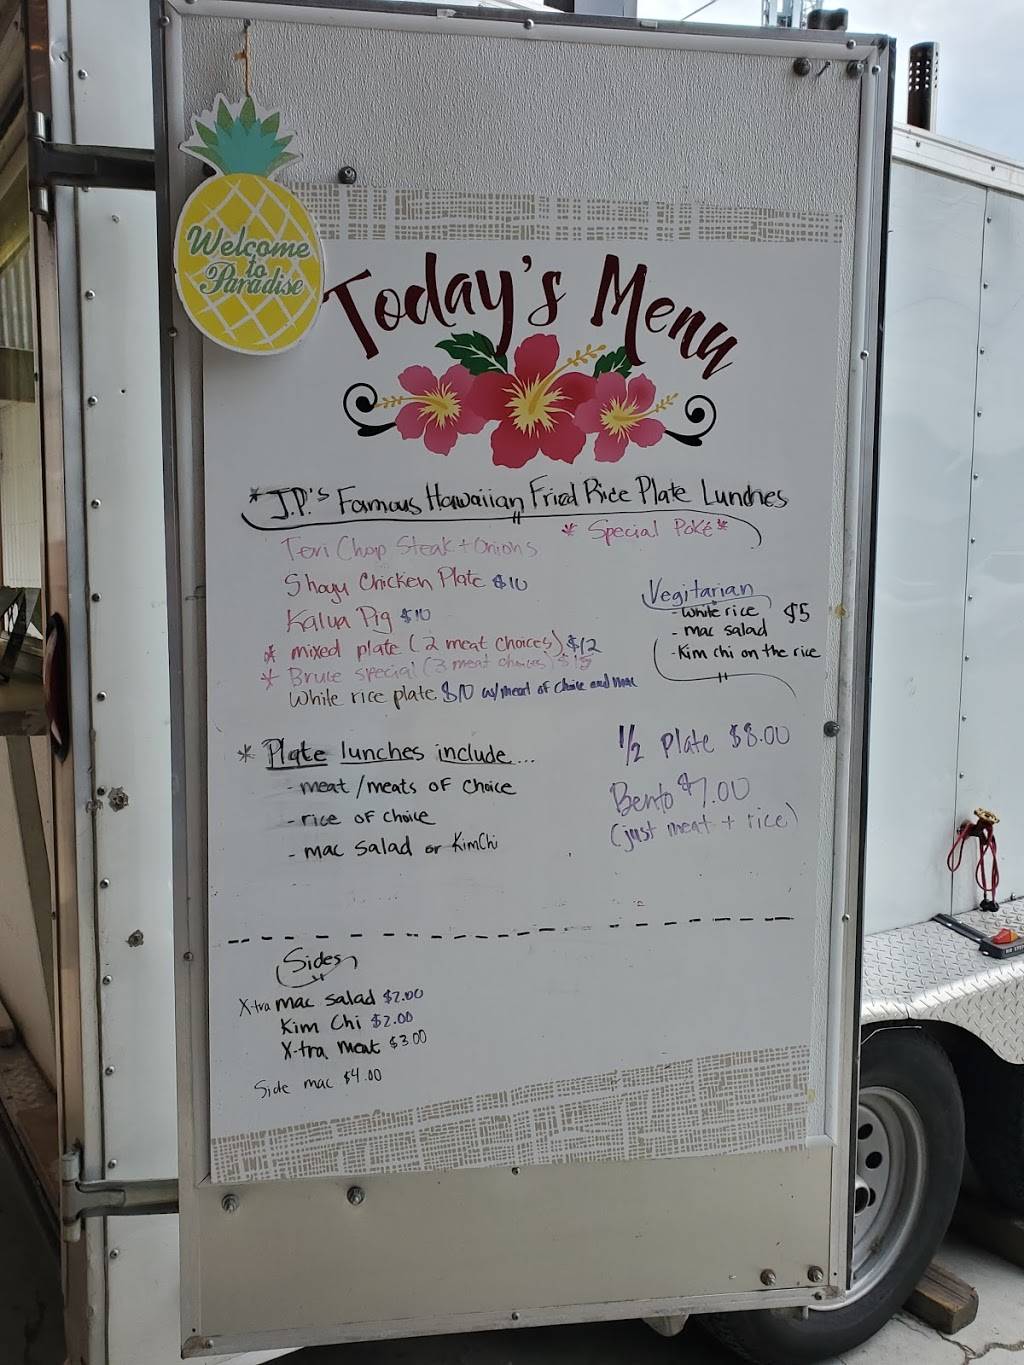 Welcome
to
Paradise
Today's Menu
*J.P.'s Famous Hawaiian Fried Rice Plate Lunches
* Special Poké *
Teri Chop Steak + Onions
Shoyu Chicken Plate $10
Kalua Pig $10
* mixed plate (2 meat choices) $12
* Bruce special (3 meat choices) $15
White rice plate $10 w/meat of choice and mac
Vegitarian
- white rice $5
- mac salad
- Kim chi on the rice
* Plate lunches include...
- meat/meats of choice
- rice of choice
- mac salad or KimChi
1/2 Plate $8.00
Bento $7.00
(just meat + rice)
Sides
X-tra mac salad $2.00
Kim Chi $2.00
X-tra meat $3.00
Side mac $4.00